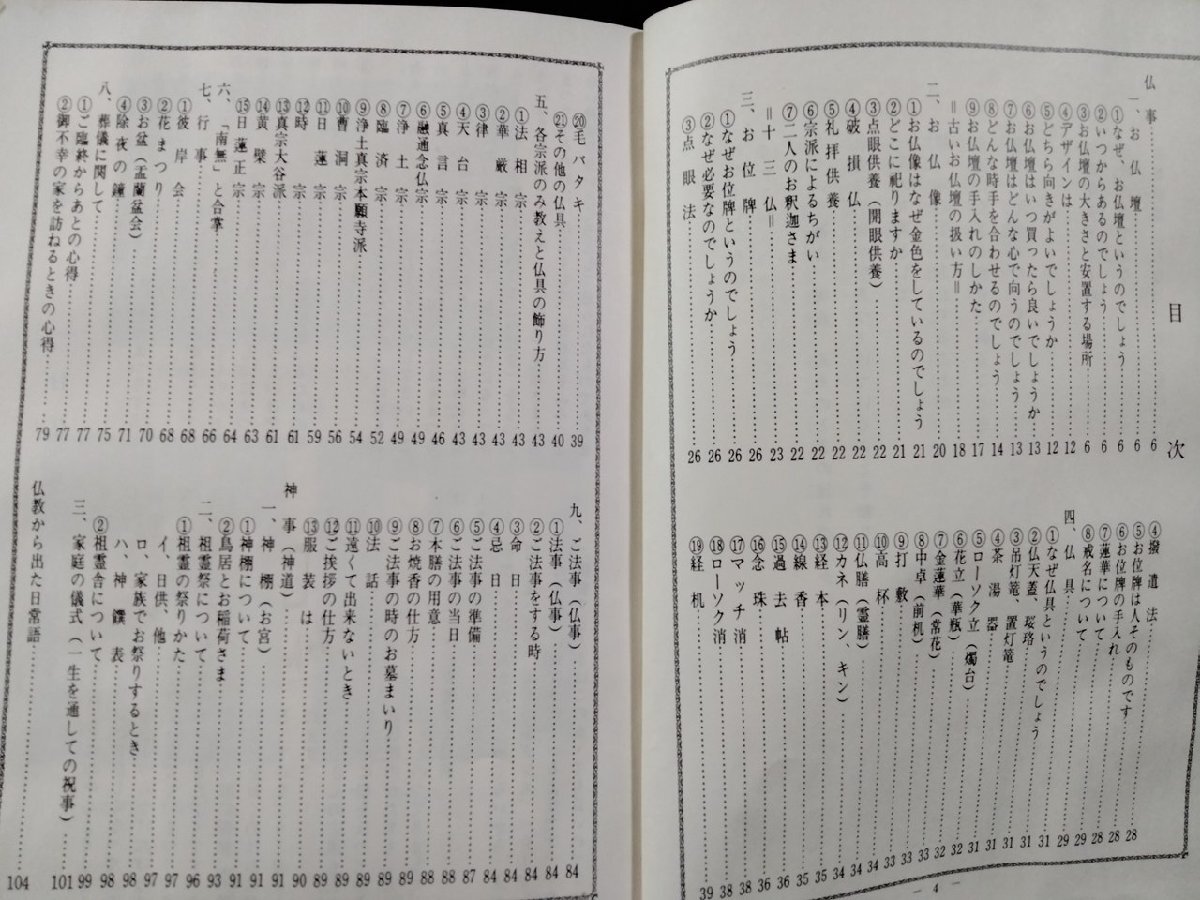 目次
仏事……6
一、お仏壇……6
①なぜ、お仏壇というのでしょう……6
②いつからあるのでしょう……6
③お仏壇の大きさと安置する場所……6
④デザインは……12
⑤どちら向きがよいでしょうか……12
⑥お仏壇はいつ買ったら良いでしょうか……13
⑦お仏壇はどんな心で向うのでしょう……13
⑧どんな時手を合わせるのでしょう……14
⑨お仏壇の手入れのしかた……17
＝古いお仏壇の扱い方＝……18
二、お仏像……20
①お仏像はなぜ金色をしているのでしょう……21
②どこに祀りますか……21
③点眼供養（開眼供養）……22
④破損仏……22
⑤礼拝供養……22
⑥宗派によるちがい……22
⑦二人のお釈迦さま……22
＝十三仏＝……23
三、お位牌……26
①なぜお位牌というのでしょう……26
②なぜ必要なのでしょうか……26
③点眼法……26
④撥遣法……28
⑤お位牌は人そのものです……28
⑥お位牌の手入れ……28
⑦蓮華について……29
⑧戒名について……29
四、仏具……31
①なぜ仏具というのでしょう……31
②仏天蓋、瓔珞……31
③吊灯篭、置灯篭……31
④茶湯器……31
⑤ローソク立（燭台）……32
⑥花立（華瓶）……32
⑦金蓮華（常花）……33
⑧中卓（前机）……33
⑨打敷……33
⑩高杯……34
⑪仏膳（霊膳）……34
⑫カネ（リン、キン）……34
⑬経本……35
⑭線香……35
⑮過去帖……36
⑯念珠……36
⑰マッチ消……38
⑱ローソク消……38
⑲経机……39
— 4 —
⑳毛バタキ……39
㉑その他の仏具……40
五、各宗派のみ教えと仏具の飾り方……43
①法相宗……43
②華厳宗……43
③律宗……43
④天台宗……43
⑤真言宗……46
⑥融通念仏宗……49
⑦浄土宗……49
⑧臨済宗……52
⑨浄土真宗本願寺派……54
⑩曹洞宗……56
⑪日蓮宗……59
⑫時宗……61
⑬真宗大谷派……61
⑭黄檗宗……63
⑮日蓮正宗……64
六、「南無」と合掌……66
七、行事……68
①彼岸会……68
②花まつり……70
③お盆（盂蘭盆会）……71
④除夜の鐘……75
八、葬儀に関して……77
①ご臨終からあとの心得……77
②御不幸の家を訪ねるときの心得……79
九、ご法事（仏事）……84
①法事（仏事）……84
②ご法事をする時……84
③命日……84
④忌日……84
⑤ご法事の準備……87
⑥ご法事の当日……88
⑦本膳の用意……88
⑧お焼香の仕方……89
⑨ご法事の時のお墓まいり……89
⑩法話……89
⑪遠くて出来ないとき……89
⑫ご挨拶の仕方……89
⑬服装は……90
神事（神道）……91
一、神棚（お宮）……91
①神棚について……91
②鳥居とお稲荷さま……93
二、祖霊祭について……96
①祖霊の祭りかた……97
イ、日供、他……97
ロ、家族でお祭りするとき……98
ハ、神饌表……98
②祖霊舎について……99
三、家庭の儀式（一生を通しての祝事）……101
仏教から出た日常語……104